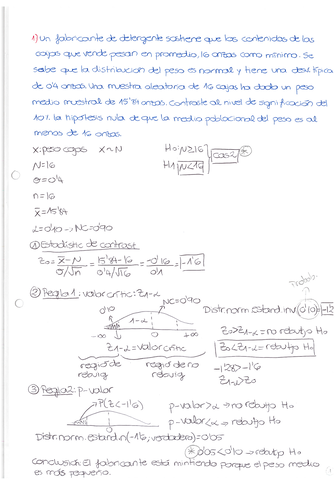 1) Un fabricante de detergente sostiene que los contenidos de las
cajas que vende pesan en promedio, 16 onzas como mínimo. Se
sabe que la distribución del peso es normal y tiene una desv. típica
de 0'4 onzas. Una muestra aleatoria de 16 cajas ha dado un peso
medio muestral de 15'84 onzas. Contraste al nivel de significación del
10%. la hipótesis nula de que la media poblacional del peso es al
menos de 16 onzas.
X: peso cajas X~N H0: N≥16
H1: N<16 caso 2 *
N=16
σ=0'4
n=16
x̄=15'84
α=0'10→NC=0'90
① Estadístic de contrast
Z0 = x̄-N / σ/√n = 15'84-16 / 0'4/√16 = -0'16 / 0'1 = -1'6
② Regla 1: valor crític: Z1-α
NC=0'90
0'10 1-α
-∞ 0 +∞
Z1-α = valor crític
región de rebuig
región de no rebuig
Distr. norm. estánd. inv (0'10)=-1'28
Z0>Z1-α = no rebutjo H0
Z0<Z1-α = rebutjo H0
-1'28>-1'6
Z1-α>Z0
③ Regla 2: p-valor
P(Z<-1'6)
p-valor>α→no rebutjo H0
p-valor<α→rebutjo H0
Distr. norm. estand. n(-1'6; verdadero)=0'05
* 0'05<0'10→rebutjo H0
Conclusión: El fabricante está mintiendo porque el peso medio
es más pequeño.